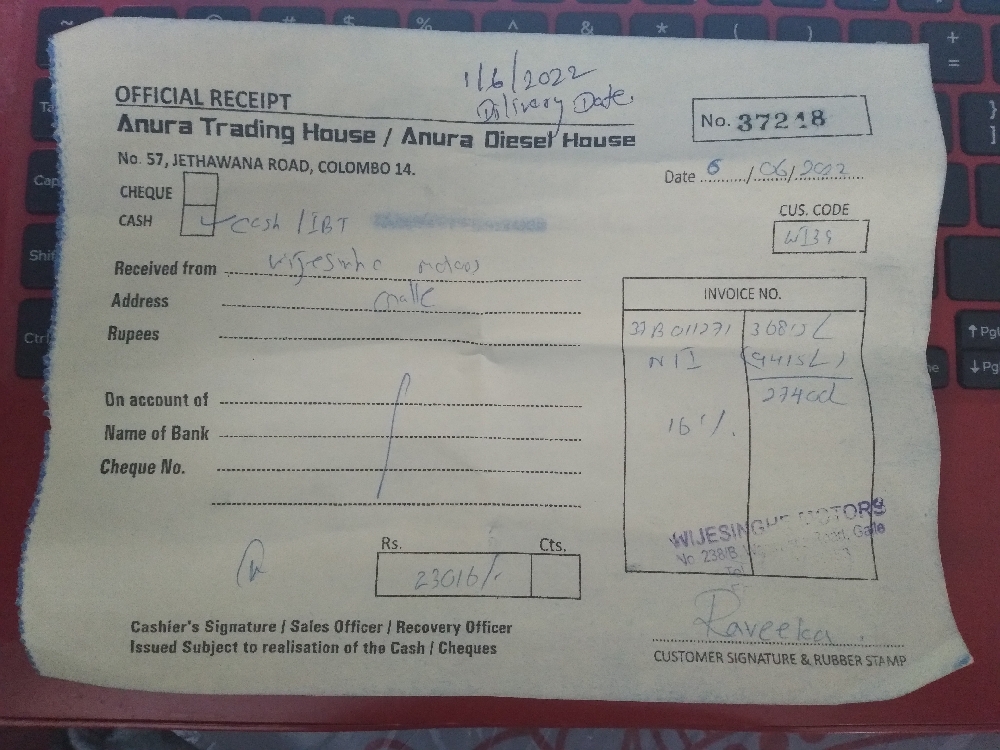 1/6/2022
Dilivery Date.
OFFICIAL RECEIPT
Anura Trading House / Anura Diesel House
No. 37248
No. 57, JETHAWANA ROAD, COLOMBO 14.
Date 6/06/2022
CHEQUE
CASH
Cash / IBT
CUS. CODE
WI39
Received from
Address Galle
Rupees
INVOICE NO.
On account of
Name of Bank
Cheque No.
16%.
WIJESINGHE MOTORS
No 238/B, Galle
Tel
Rs. Cts.
23016/-
Raveeka
Cashier's Signature / Sales Officer / Recovery Officer
Issued Subject to realisation of the Cash / Cheques
CUSTOMER SIGNATURE & RUBBER STAMP